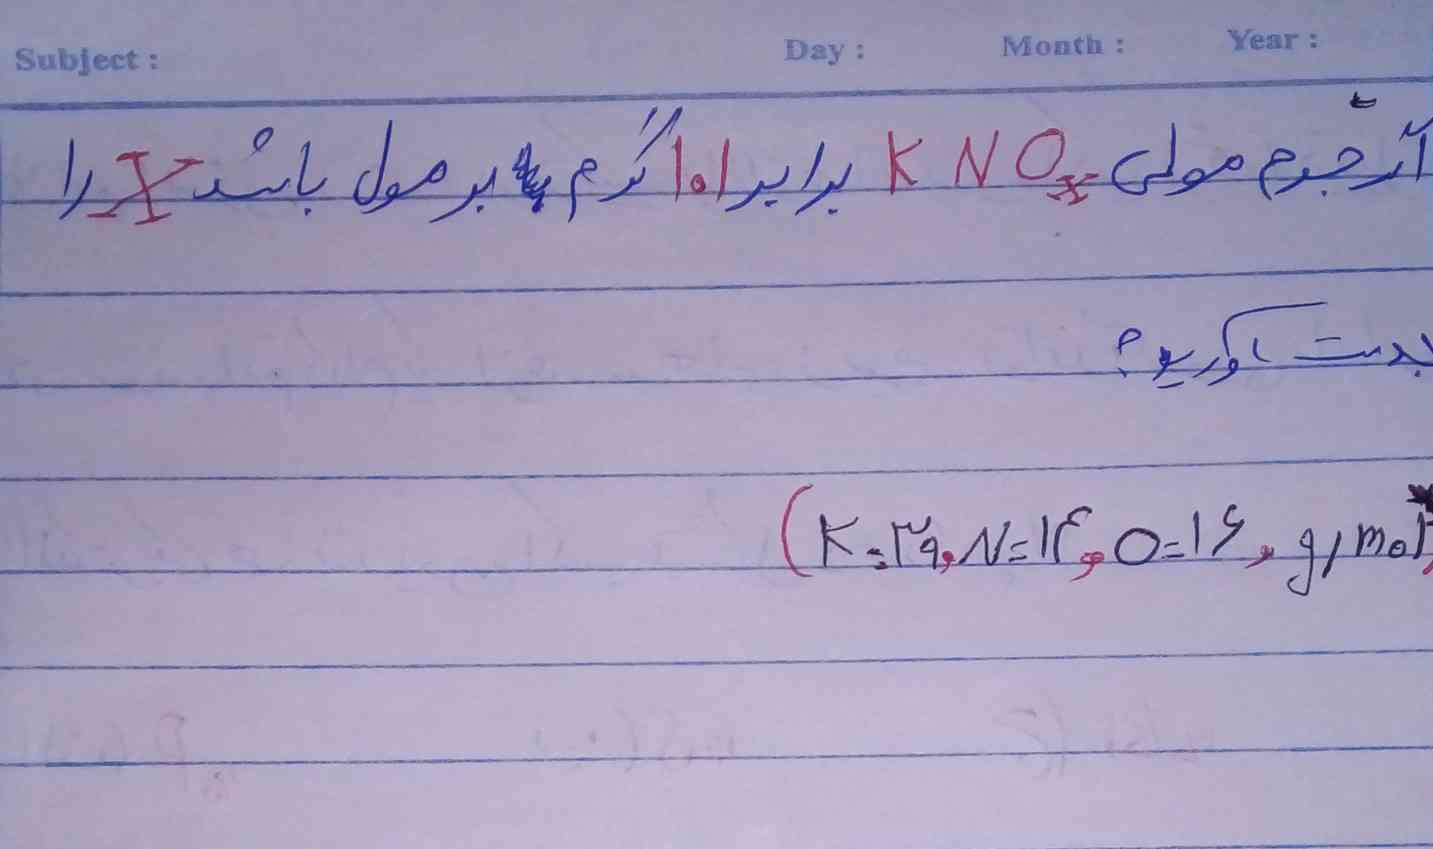 Subject : Day : Month : Year :
اگر جرم مولی KNOx برابر ۱۰۱ گرم بر مول باشد X را
بدست آورید؟
(K=۳۹, N=۱۴, O=۱۶, g/mol)